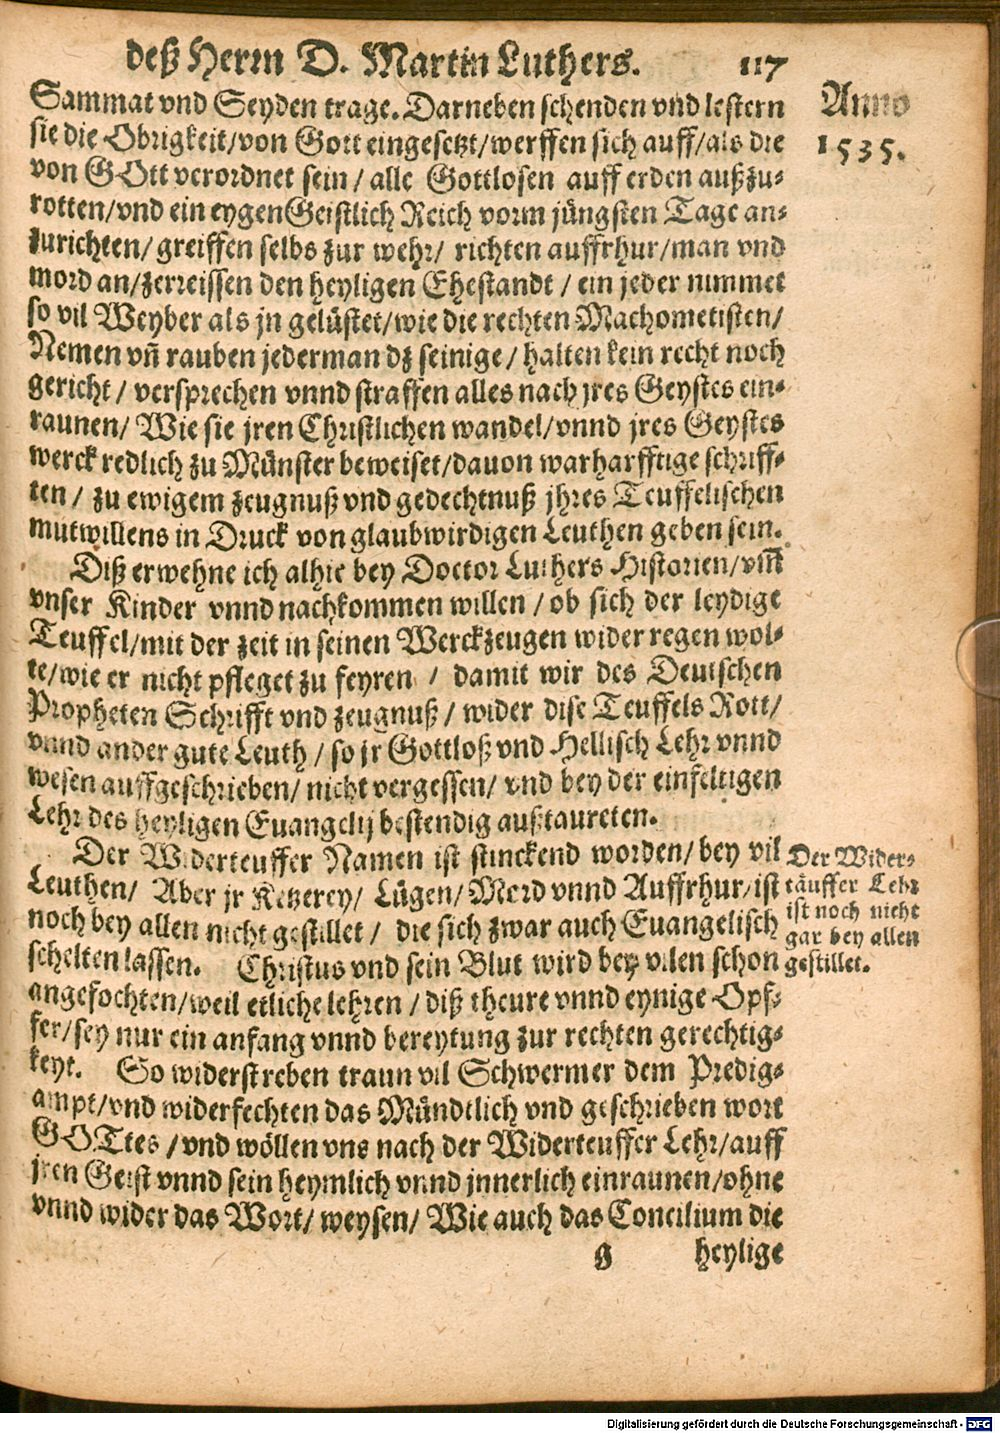 deß Herrn D. Martin Luthers. 117
Sammat vnd Seyden trage. Darneben schenden vnd lestern
sie die Obrigkeit/von Gott eingesetzt/werffen sich auff/als die
von GOtt verordnet sein/ alle Gottlosen auff erden außzu-
rotten/vnd ein eygen Geistlich Reich vorm jüngsten Tage an-
zurichten/ greiffen selbs zur wehr/ richten auffrhur/man vnd
mord an/zerreissen den heyligen Ehestandt / ein jeder nimmet
so vil Weyber als jn gelüstet/wie die rechten Machometisten/
Nemen vñ rauben jederman dz seinige/ halten kein recht noch
gericht/ versprechen vnnd straffen alles nach jres Geystes ein-
raunen/ Wie sie jren Christlichen wandel/vnnd jres Geystes
werck redlich zu Münster beweiset/dauon warharfftige schriff-
ten / zu ewigem zeugnuß vnd gedechtnuß jhres Teuffelischen
mutwillens in Druck von glaubwirdigen Leuthen geben sein.
Diß erwehne ich alhie bey Doctor Luthers Historien/vm̃
vnser Kinder vnnd nachkommen willen / ob sich der leydige
Teuffel/mit der zeit in seinen Werckzeugen wider regen wol-
te/wie er nicht pfleget zu feyren / damit wir des Deutschen
Propheten Schrifft vnd zeugnuß/ wider dise Teuffels Rott/
vnnd ander gute Leuth / so jr Gottloß vnd Hellisch Lehr vnnd
wesen auffgeschrieben/ nicht vergessen/ vnd bey der einfeltigen
Lehr des heyligen Euangelij bestendig außtaureten.
Der Widerteuffer Namen ist stinckend worden/ bey vil
Leuthen/ Aber jr Ketzerey/ Lügen/ Mord vnnd Auffrhur/ist
noch bey allen nicht gestillet/ die sich zwar auch Euangelisch
schelten lassen. Christus vnd sein Blut wird bey vilen schon
angefochten/weil etliche lehren / diß theure vnnd eynige Opf-
fer/sey nur ein anfang vnnd bereytung zur rechten gerechtig-
keyt. So widerstreben traun vil Schwermer dem Predig-
ampt/vnd widerfechten das Mündtlich vnd geschrieben wort
GOTtes /vnd wöllen vns nach der Widerteuffer Lehr/auff
jren Geist vnnd sein heymlich vnnd jnnerlich einraunen/ohne
vnnd wider das Wort/ weysen/ Wie auch das Concilium die
g heylige
Anno
1535.
Der Wider-
täuffer Lehr
ist noch nicht
gar bey allen
gestillet.
Digitalisierung gefördert durch die Deutsche Forschungsgemeinschaft - DFG